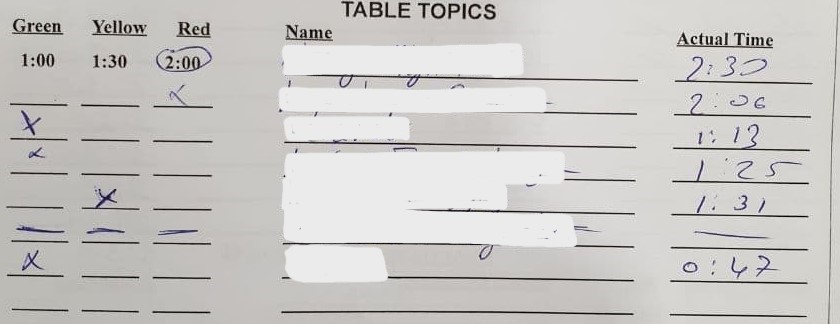 TABLE TOPICS
Green Yellow Red Name Actual Time
1:00 1:30 2:00 2:30
x 2:06
x 1:13
x 1:25
x 1:31
— — — —
x 0:47